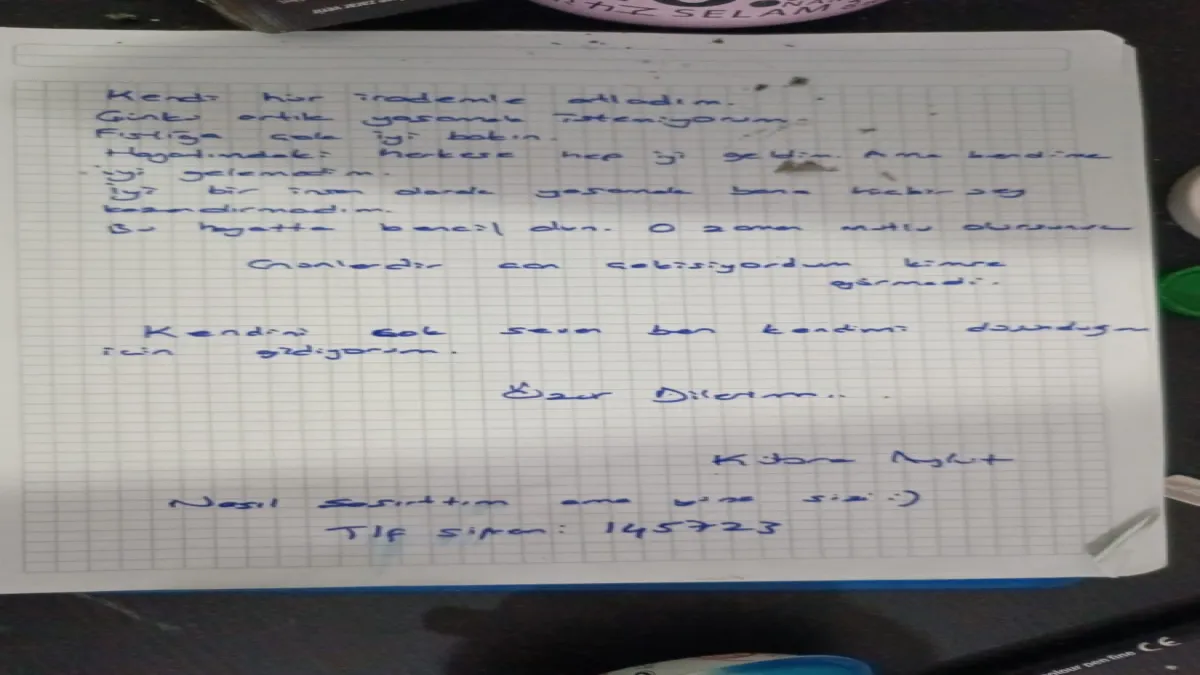 SELAM
Kendi hür irademle atladım.
Çünkü artık yaşamak istemiyorum.
Fıstığa çok iyi bakın.
Hayatımdaki herkese hep iyi geldim. Ama kendime
iyi gelemedim.
İyi bir insan olarak yaşamak bana hiçbir şey
kazandırmadım.
Bu hayatta bencil olun. O zaman mutlu olursunuz
can çekişiyordum kimse
görmedi.
Kendini çok seven ben kendimi
için gidiyorum.
Özür Dilerim..
Nasıl şaşırttım ama yine sizi :)
Tlf şifrem: 145723
colour pen fine CE